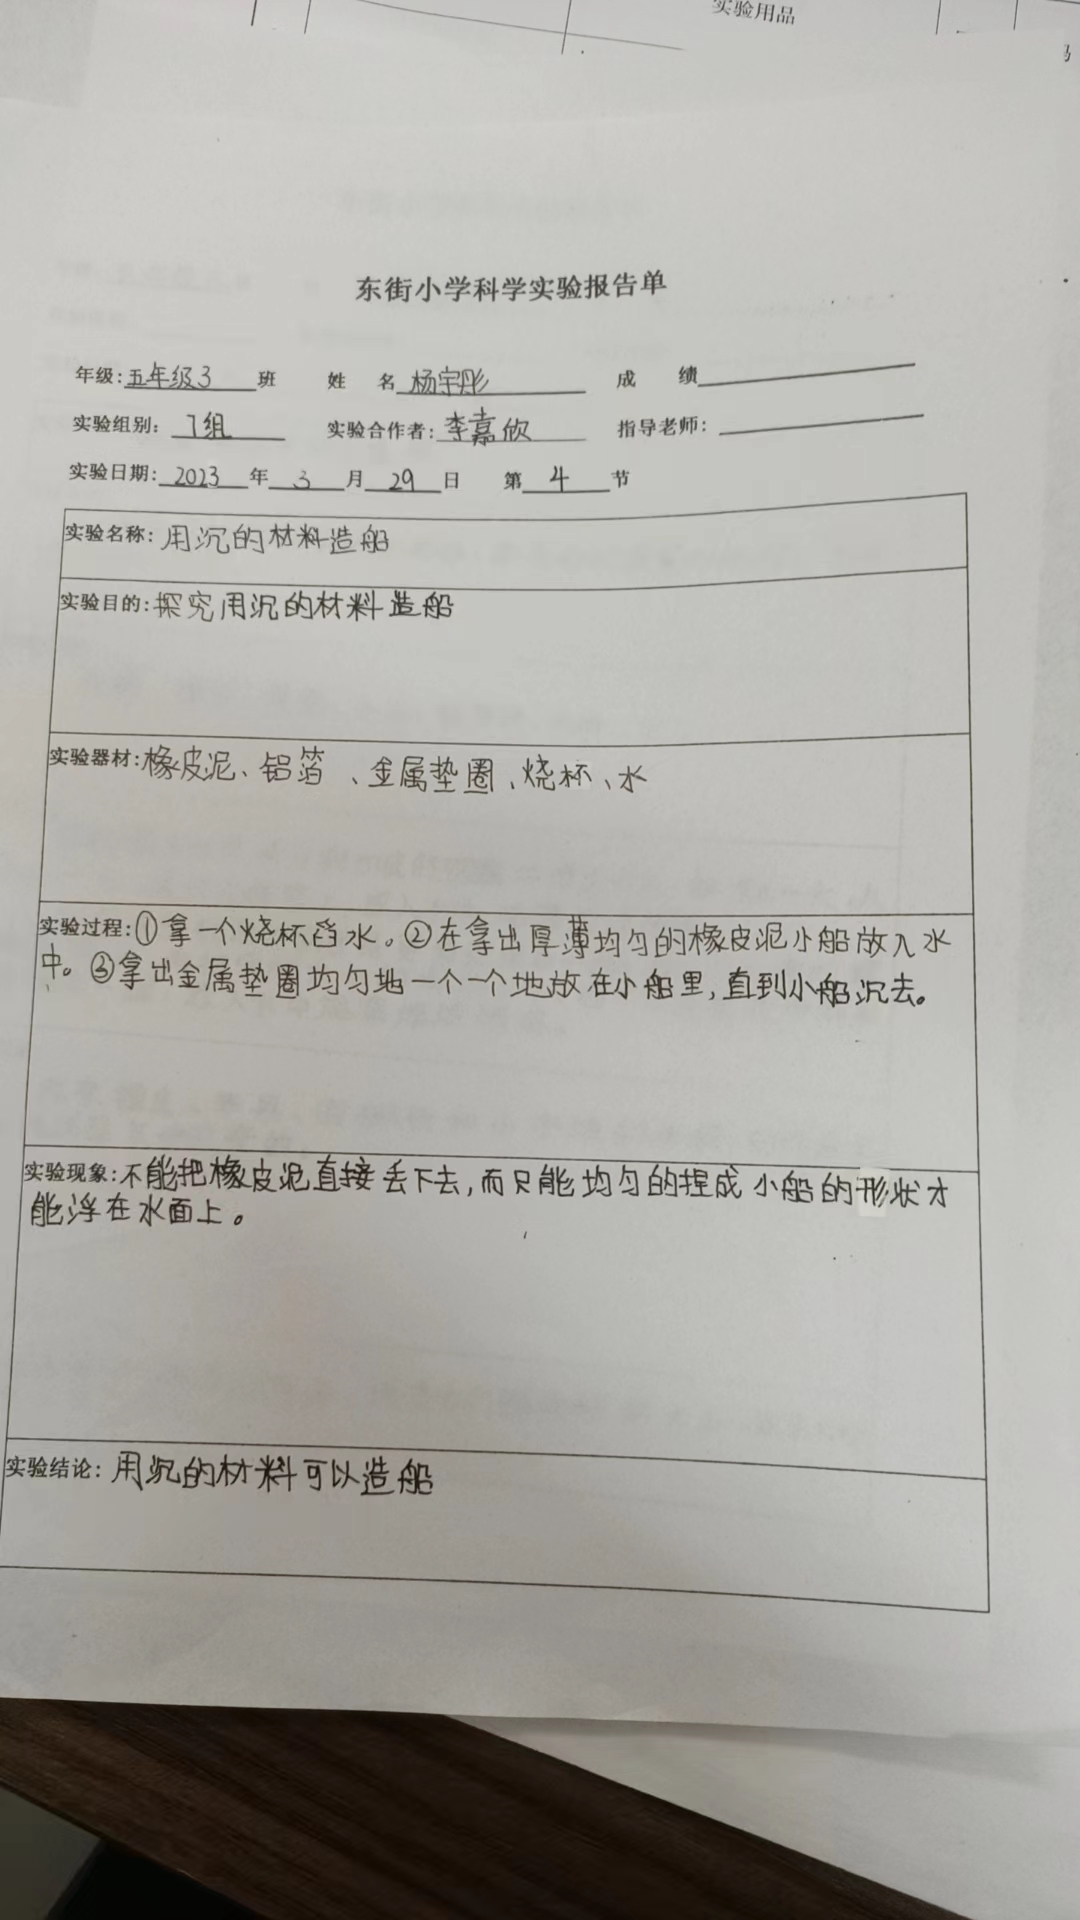 实验用品
东街小学科学实验报告单
年级:五年级3班 姓 名 杨宇彤 成 绩
实验组别: 7组 实验合作者: 李嘉欣 指导老师:
实验日期: 2023 年 3 月 29 日 第 4 节
实验名称: 用沉的材料造船
实验目的: 探究用沉的材料造船
实验器材: 橡皮泥、铝箔、金属垫圈、烧杯、水
实验过程: ①拿一个烧杯舀水。②在拿出厚薄均匀的橡皮泥小船放入水
中。③拿出金属垫圈均匀地一个一个地放在小船里,直到小船沉去。
实验现象: 不能把橡皮泥直接丢下去,而只能均匀的捏成小船的形状才
能浮在水面上。
实验结论: 用沉的材料可以造船